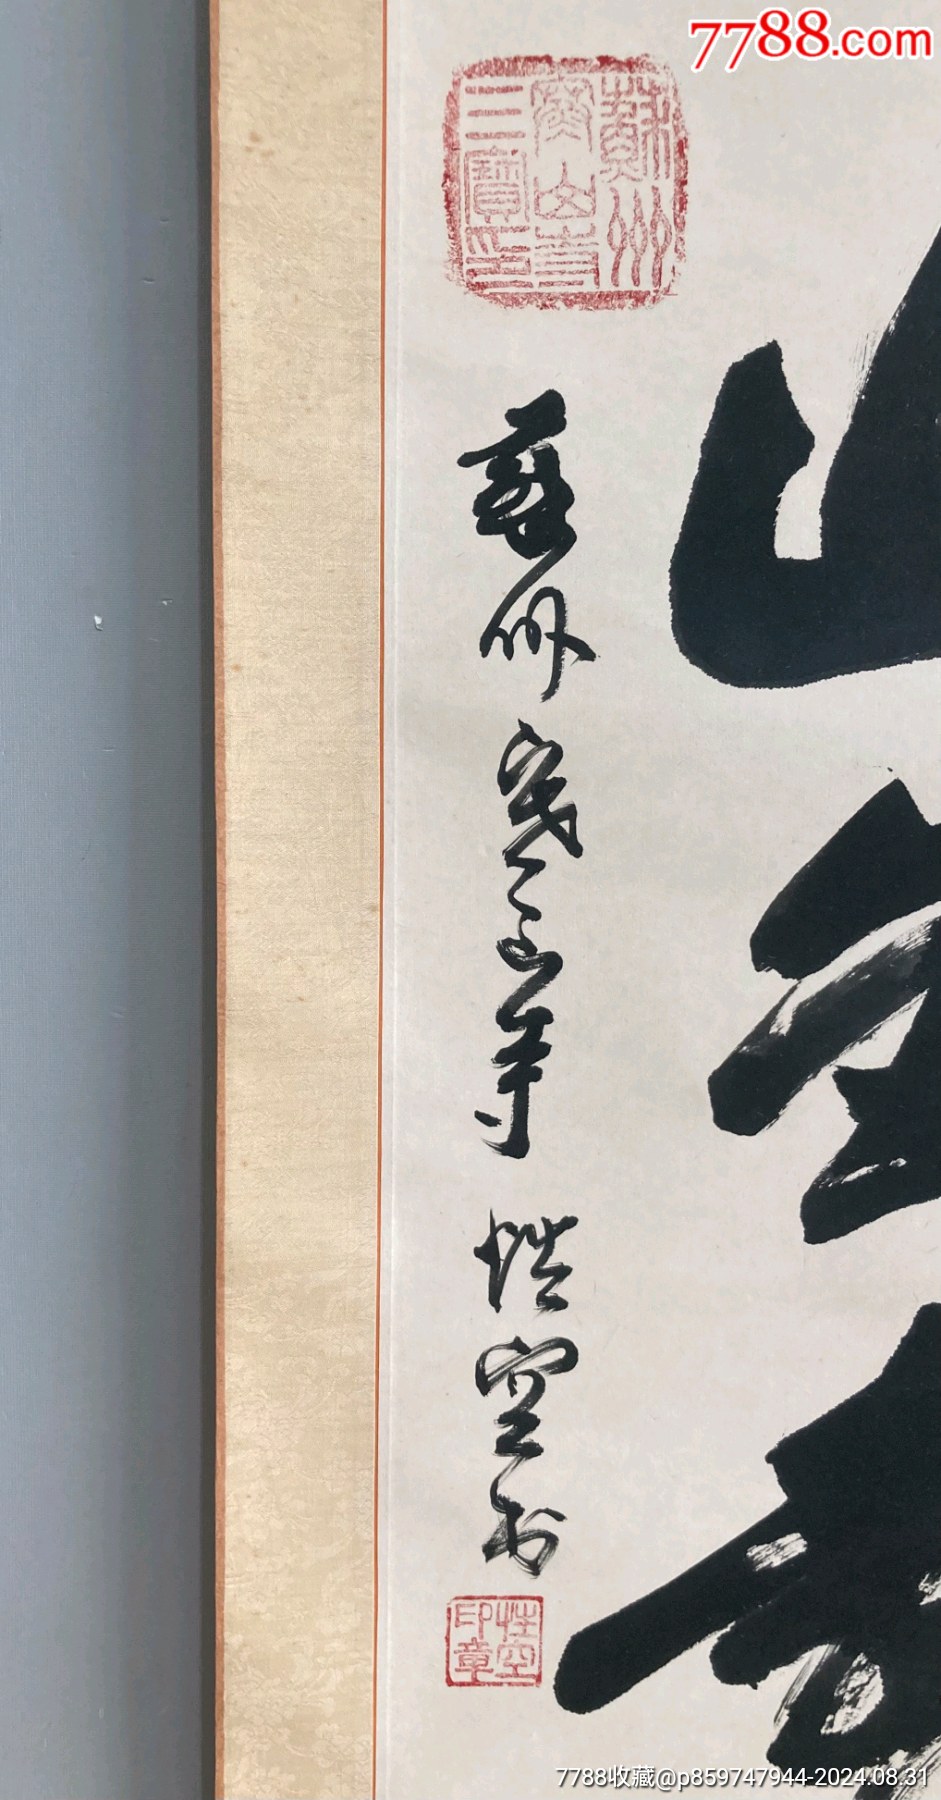 7788.com
蘇州
寒山寺
三寶印
蘇州寒山寺 性空书
性空
印章
7788收藏@p859747944-2024.08.31